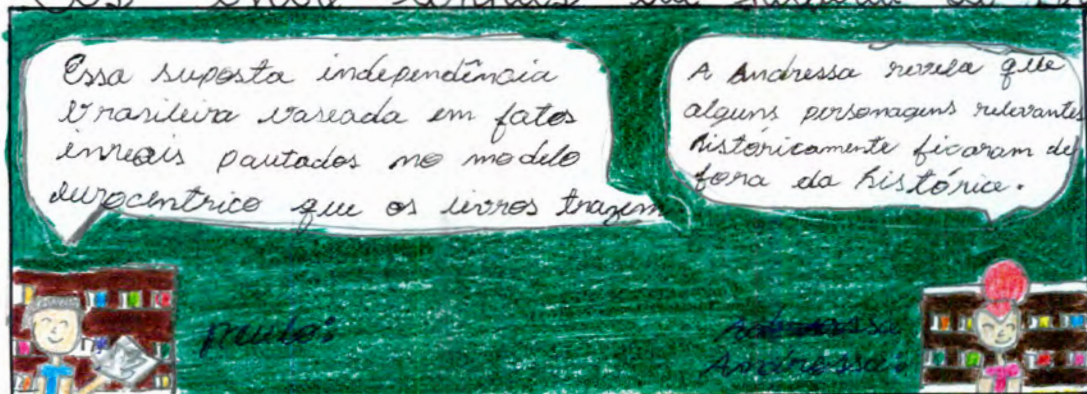 Essa suposta independência
brasileira baseada em fatos
irreais pautados no modelo
eurocentrico que os livros trazem
A Andressa revela que
alguns personagens relevantes
históricamente ficaram de
fora da história.
paulo:
Andressa: